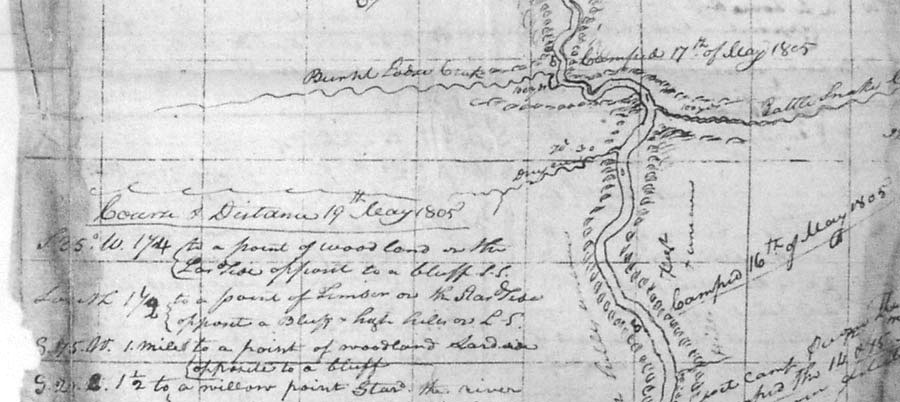 Camped 17th of May 1805
Burnt Lodge Creek
Rattle Snake
Course & Distance 19th May 1805
S 35° W. 1 1/4 to a point of woodland on the
Lard Side opposit to a bluff S.S.
South 1 1/2 to a point of timber on the Stard Side
opposit a Bluff & high hills on L S.
W. 1 mile to a point of woodland Lard side
opposite to a bluff
1 1/2 to a willow point Stard. the river
Camped 16th of May 1805
camp
the 14